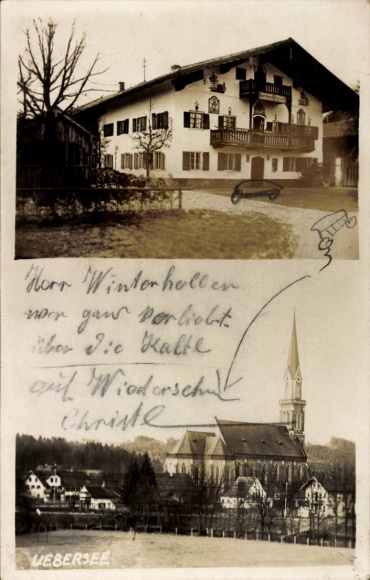 Herr Winterhollen
wor ganz verliebt
über Die Kälte
auf Wiedersehn
Christl
UEBERSEE